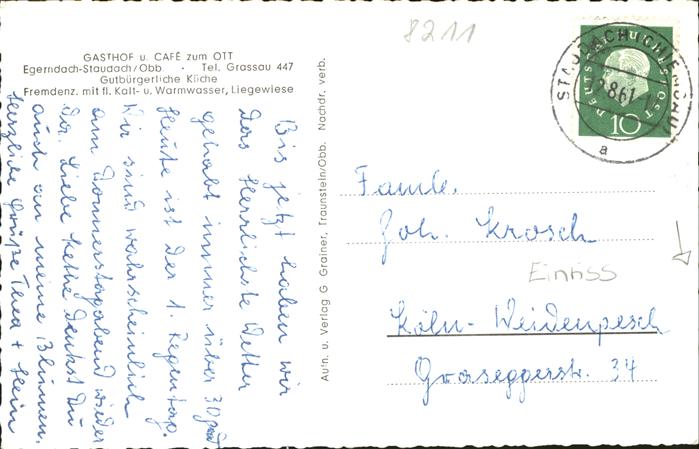 8211
GASTHOF u. CAFÉ zum OTT
Egerndach-Staudach/Obb. · Tel. Grassau 447
Gutbürgerliche Küche
Fremdenz. mit fl. Kalt- u. Warmwasser, Liegewiese
Bis jetzt haben wir
das herrlichste Wetter
gehabt immer über 30 grad
Heute ist der 1. Regentag.
Wir sind wahrscheinlich
am Donnerstagabend wieder
da. Liebe Käthe denkst Du
auch an meine Blumen.
Herzliche Grüße Thea + Hein
Aufn. u. Verlag G Grainer, Traunstein/Obb. Nachdr. verb.
STAUDACH (CHIEMGAU)
8.61
a
DEUTSCHE BUNDESPOST
10
Famle.
Joh. Krosch
Einriss
Köln-Weidenpesch
Graseggerstr. 34